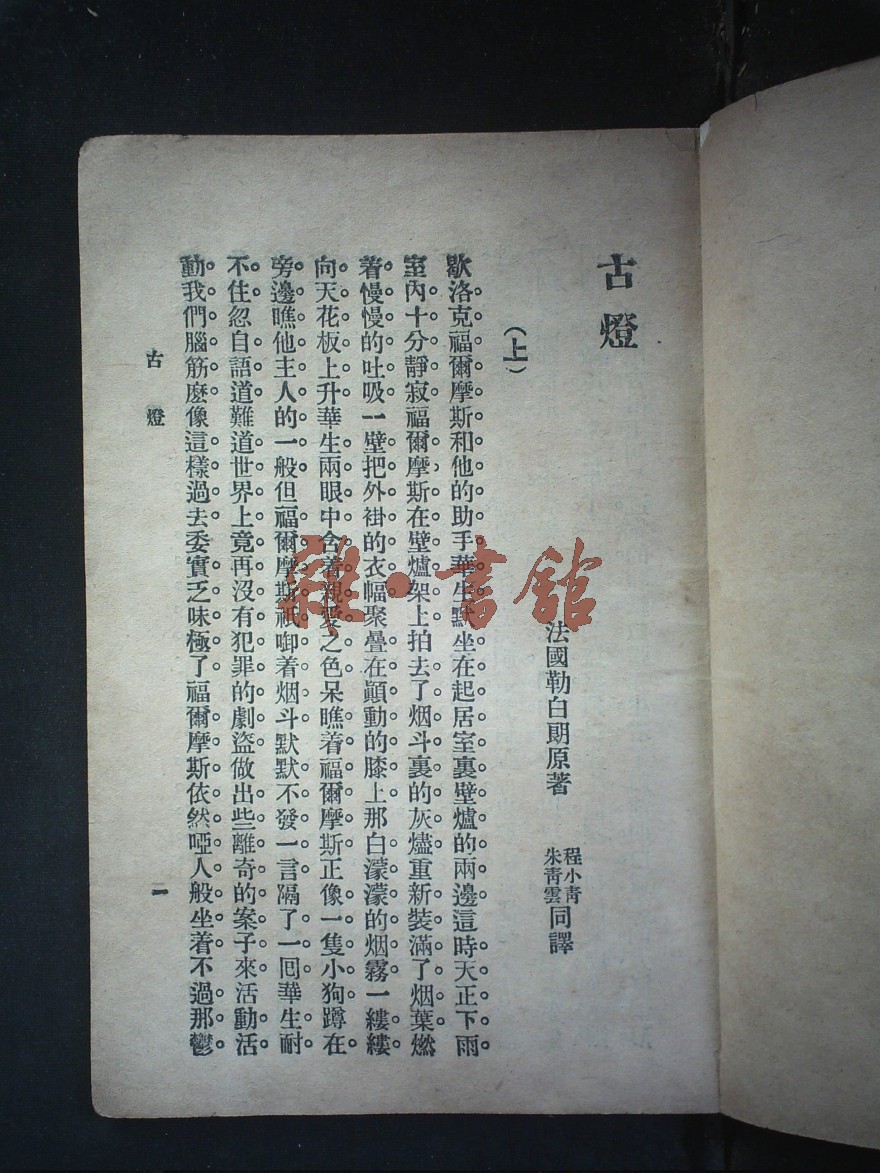 古燈
法國勒白朗原著 程小青 朱青雲 同譯
(上)
歇洛克福爾摩斯和他的助手華生默坐在起居室裏壁爐的兩邊這時天正下雨
室內十分靜寂福爾摩斯在壁爐架上拍去了烟斗裏的灰燼重新裝滿了烟葉燃
着慢慢的吐吸一壁把外褂的衣幅聚疊在顫動的膝上那白濛濛的烟霧一縷縷
向天花板上升華生兩眼中含着親愛之色呆瞧着福爾摩斯正像一隻小狗蹲在
旁邊瞧他主人的一般但福爾摩斯祇啣着烟斗默默不發一言隔了一囘華生耐
不住忽自語道難道世界上竟再沒有犯罪的劇盜做出些離奇的案子來活動活
動我們腦筋麼像這樣過去委實乏味極了福爾摩斯依然啞人般坐着不過那鬱
古燈
一
雜·書館